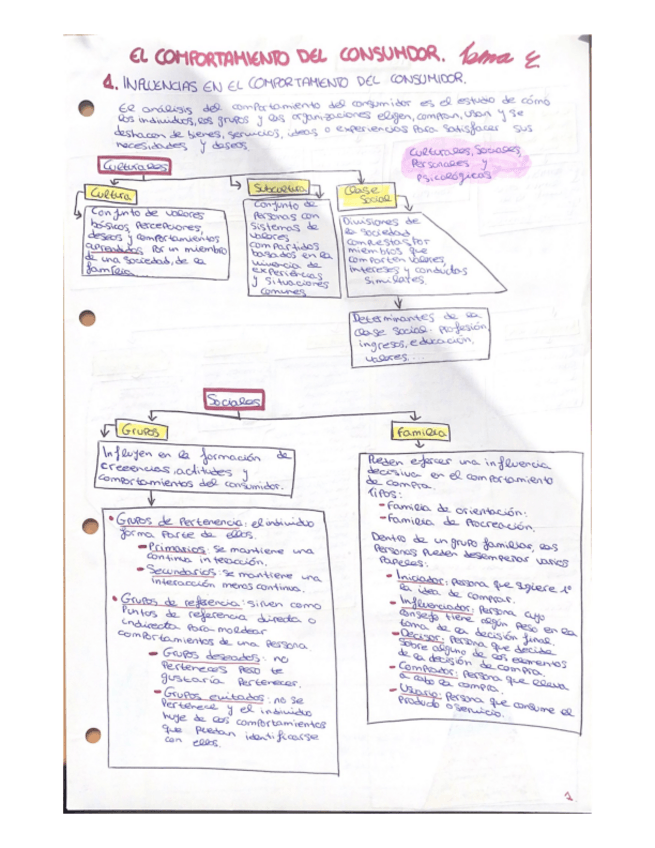 EL COMPORTAMIENTO DEL CONSUMIDOR. Tema
1. INFLUENCIAS EN EL COMPORTAMIENTO DEL CONSUMIDOR.
El análisis del comportamiento del consumidor es el estudio de cómo
los individuos, los grupos y las organizaciones eligen, compran, usan y se
deshacen de bienes, servicios, ideas o experiencias para satisfacer sus
necesidades y deseos.
Culturales, Sociales,
Personales y
Psicológicos
Culturales
Cultura
Conjunto de valores
básicos, percepciones,
deseos y comportamientos
aprendidos por un miembro
de una sociedad, de la
familia
Subcultura
Conjunto de
personas con
sistemas de
valores
compartidos
basados en la
vivencia de
experiencias
y situaciones
comunes
Clase
Social
Divisiones de
la sociedad
compuestas por
miembros que
comparten valores,
intereses y conductas
similares.
Determinantes de la
clase social: profesión,
ingresos, educación,
valores...
Sociales
Grupos
Influyen en la formación de
creencias, actitudes y
comportamientos del consumidor.
• Grupos de pertenencia: el individuo
forma parte de ellos.
- Primarios: se mantiene una
continua interacción.
- Secundarios: se mantiene una
interacción menos continua.
• Grupos de referencia: sirven como
puntos de referencia directa o
indirecta para moldear
comportamientos de una persona.
- Grupos deseados: no
perteneces pero te
gustaría pertenecer.
- Grupos evitados: no se
pertenece y el individuo
huye de los comportamientos
que puedan identificarse
con ellos.
Familia
Pueden ejercer una influencia
decisiva en el comportamiento
de compra.
Tipos:
- Familia de orientación.
- Familia de procreación.
Dentro de un grupo familiar, las
personas pueden desempeñar varios
papeles:
- Iniciador: persona que sugiere 1º
la idea de comprar.
- Influenciador: persona cuyo
consejo tiene algún peso en la
toma de la decisión final.
- Decisor: persona que decida
sobre alguno de los elementos
de la decisión de compra.
- Comprador: persona que lleva
a cabo la compra.
- Usuario: persona que consume el
producto o servicio.
1